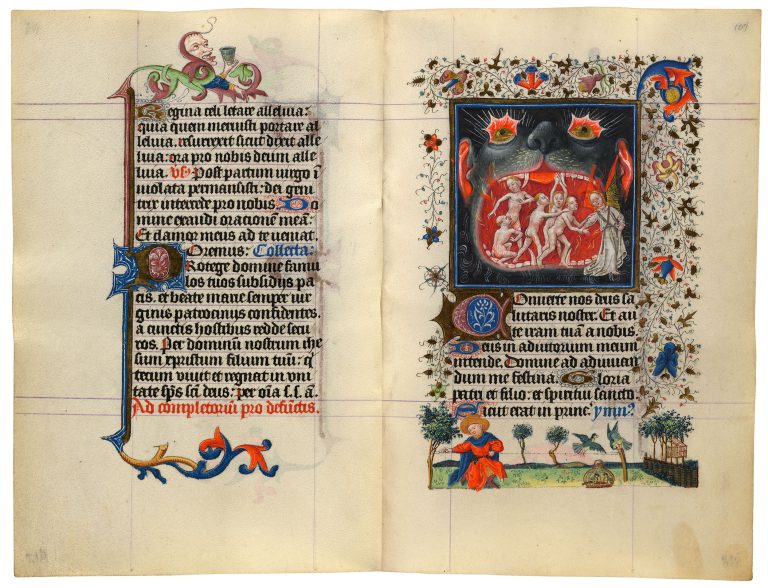 Regina celi letare alleluia:
quia quem meruisti portare al
leluia. resurrexit sicut dixit alle
luia: ora pro nobis deum alle
luia. Vs. Post partum uirgo i
uiolata permansisti: dei geni
trix intercede pro nobis. Do
mine exaudi orationem meā:
Et clamor meus ad te ueniat.
Oremus: Collecta:
Protege domine famu
los tuos subsidijs pa
cis. et beate marie semper uir
ginis patrocinijs confidentes.
a cunctis hostibus redde secu
ros. Per dominum nostrum ihe
sum xpistum filium tuū: q
tecum uiuit et regnat in uni
tate sp̄s sc̄i deus: per om̄ia s. s. ā.
Ad completoriū pro defūctis.
Conuerte nos deus sa
lutaris noster. Et auer
te iram tuā a nobis.
Deus in adiutorium meum
intende. Domine ad adiuuan
dum me festina. Gloria
patri et filio: et spiritui sancto
Sicut erat in princ. ymn9